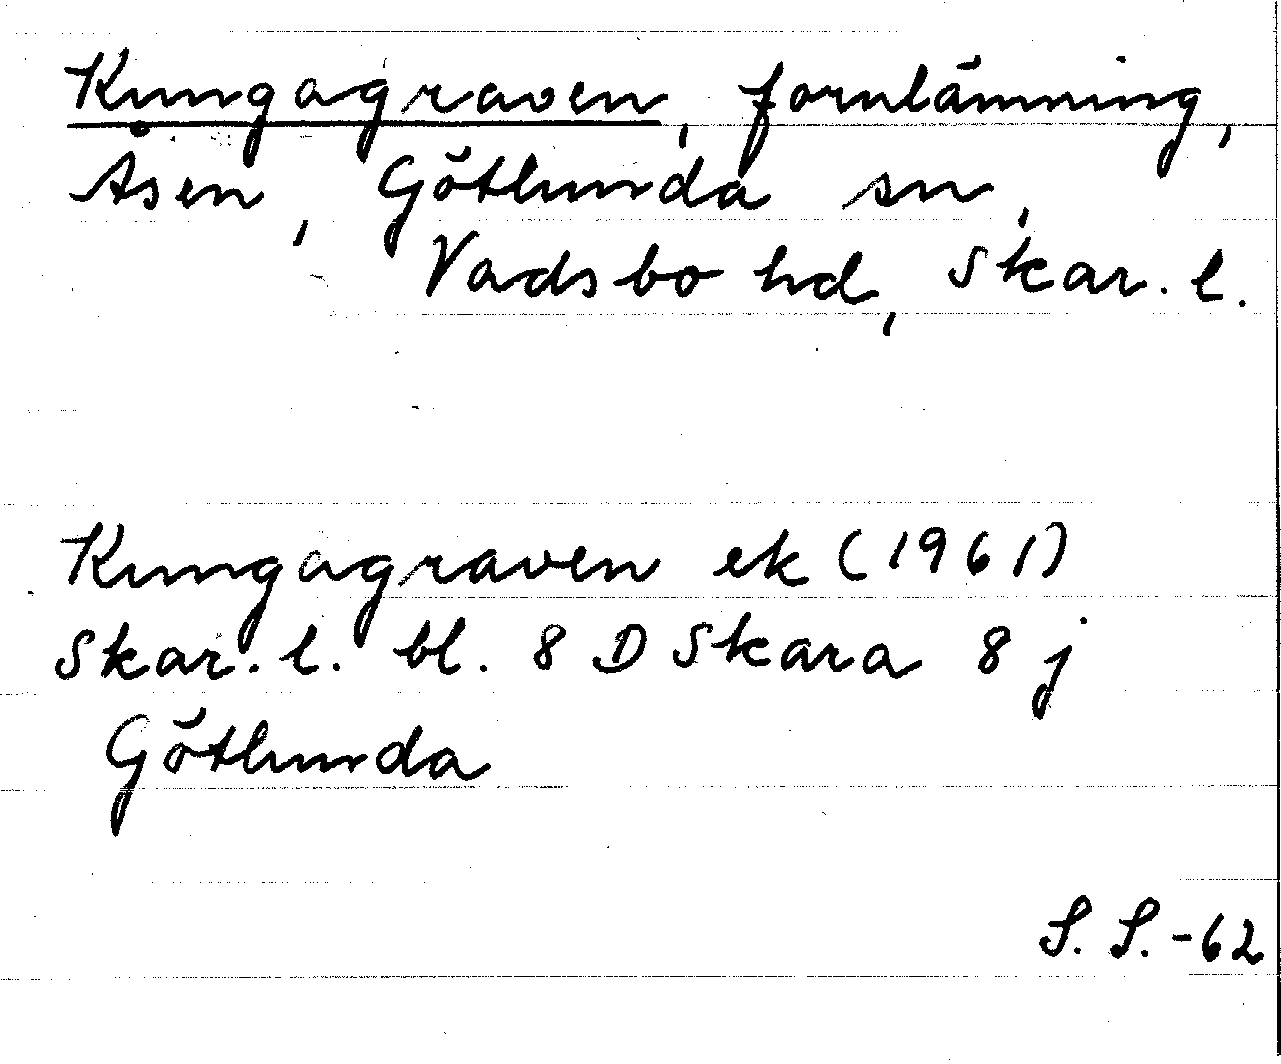 Kungagraven, fornlämning,
Åsen, Götlunda sn,
Vadsbo hd, Skar. l.
Kungagraven ek (1961)
Skar. l. bl. 8 D Skara 8 j
Götlunda
S. S. -62